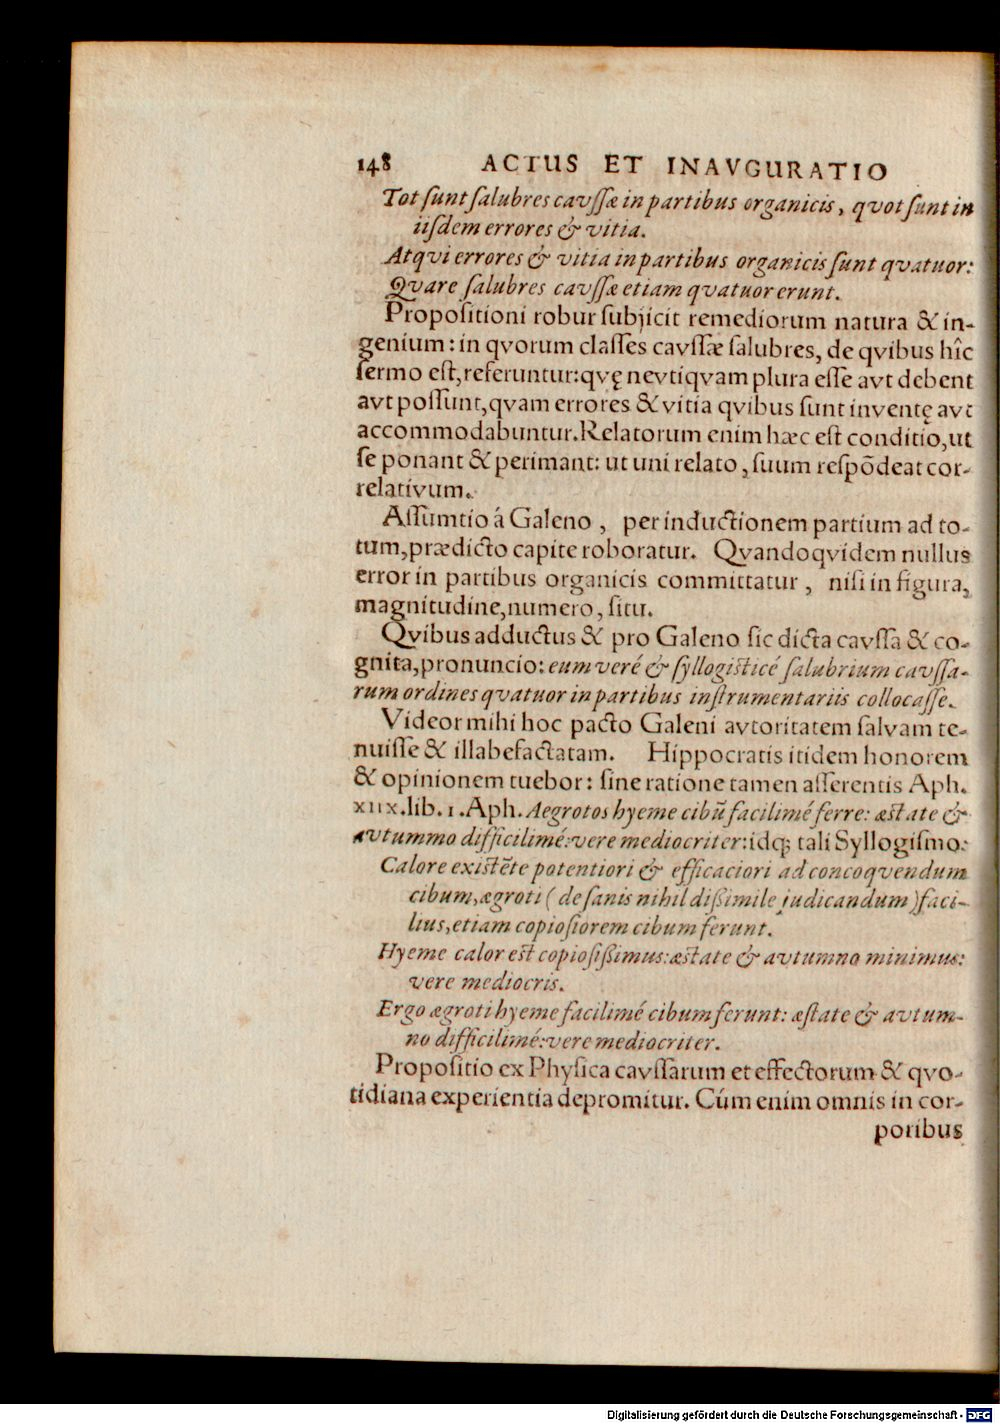 148 ACTUS ET INAVGURATIO
Tot ſunt ſalubres cavſſæ in partibus organicis, qvot ſunt in
iiſdem errores & vitia.
Atqvi errores & vitia in partibus organicis ſunt qvatuor:
Qvare ſalubres cavſſæ etiam qvatuor erunt.
Propoſitioni robur ſubjicit remediorum natura & in-
genium: in qvorum claſſes cavſſæ ſalubres, de qvibus hîc
ſermo eſt, referuntur: qvę nevtiqvam plura eſſe avt debent
avt poſſunt, qvam errores & vitia qvibus ſunt inventę avt
accommodabuntur. Relatorum enim hæc eſt conditio, ut
ſe ponant & perimant: ut uni relato, ſuum reſpõdeat cor-
relativum.
Aſſumtio á Galeno, per inductionem partium ad to-
tum, prædicto capite roboratur. Qvandoqvidem nullus
error in partibus organicis committatur, niſi in figura,
magnitudine, numero, ſitu.
Qvibus adductus & pro Galeno ſic dicta cavſſa & co-
gnita, pronuncio: eum veré & ſyllogiſticé ſalubrium cavſſa-
rum ordines qvatuor in partibus inſtrumentariis collocaſſe.
Videor mihi hoc pacto Galeni avtoritatem ſalvam te-
nuiſſe & illabefactatam. Hippocratis itidem honorem
& opinionem tuebor: ſine ratione tamen aſſerentis Aph.
xiix. lib. 1. Aph. Aegrotos hyeme cibũ facilimé ferre: æſtate &
avtummo difficilimé: vere mediocriter: idq; tali Syllogiſmo:
Calore exiſtẽte potentiori & efficaciori ad concoqvendum
cibum, ægroti (de ſanis nihil diſſimile judicandum) faci-
lius, etiam copioſiorem cibum ferunt.
Hyeme calor eſt copioſiſſimus: æſtate & avtumno minimus:
vere mediocris.
Ergo ægroti hyeme facilimé cibum ferunt: æſtate & avtum-
no difficilimé: vere mediocriter.
Propoſitio ex Phyſica cavſſarum et effectorum & qvo-
tidiana experientia depromitur. Cúm enim omnis in cor-
poribus
Digitalisierung gefördert durch die Deutsche Forschungsgemeinschaft - DFG